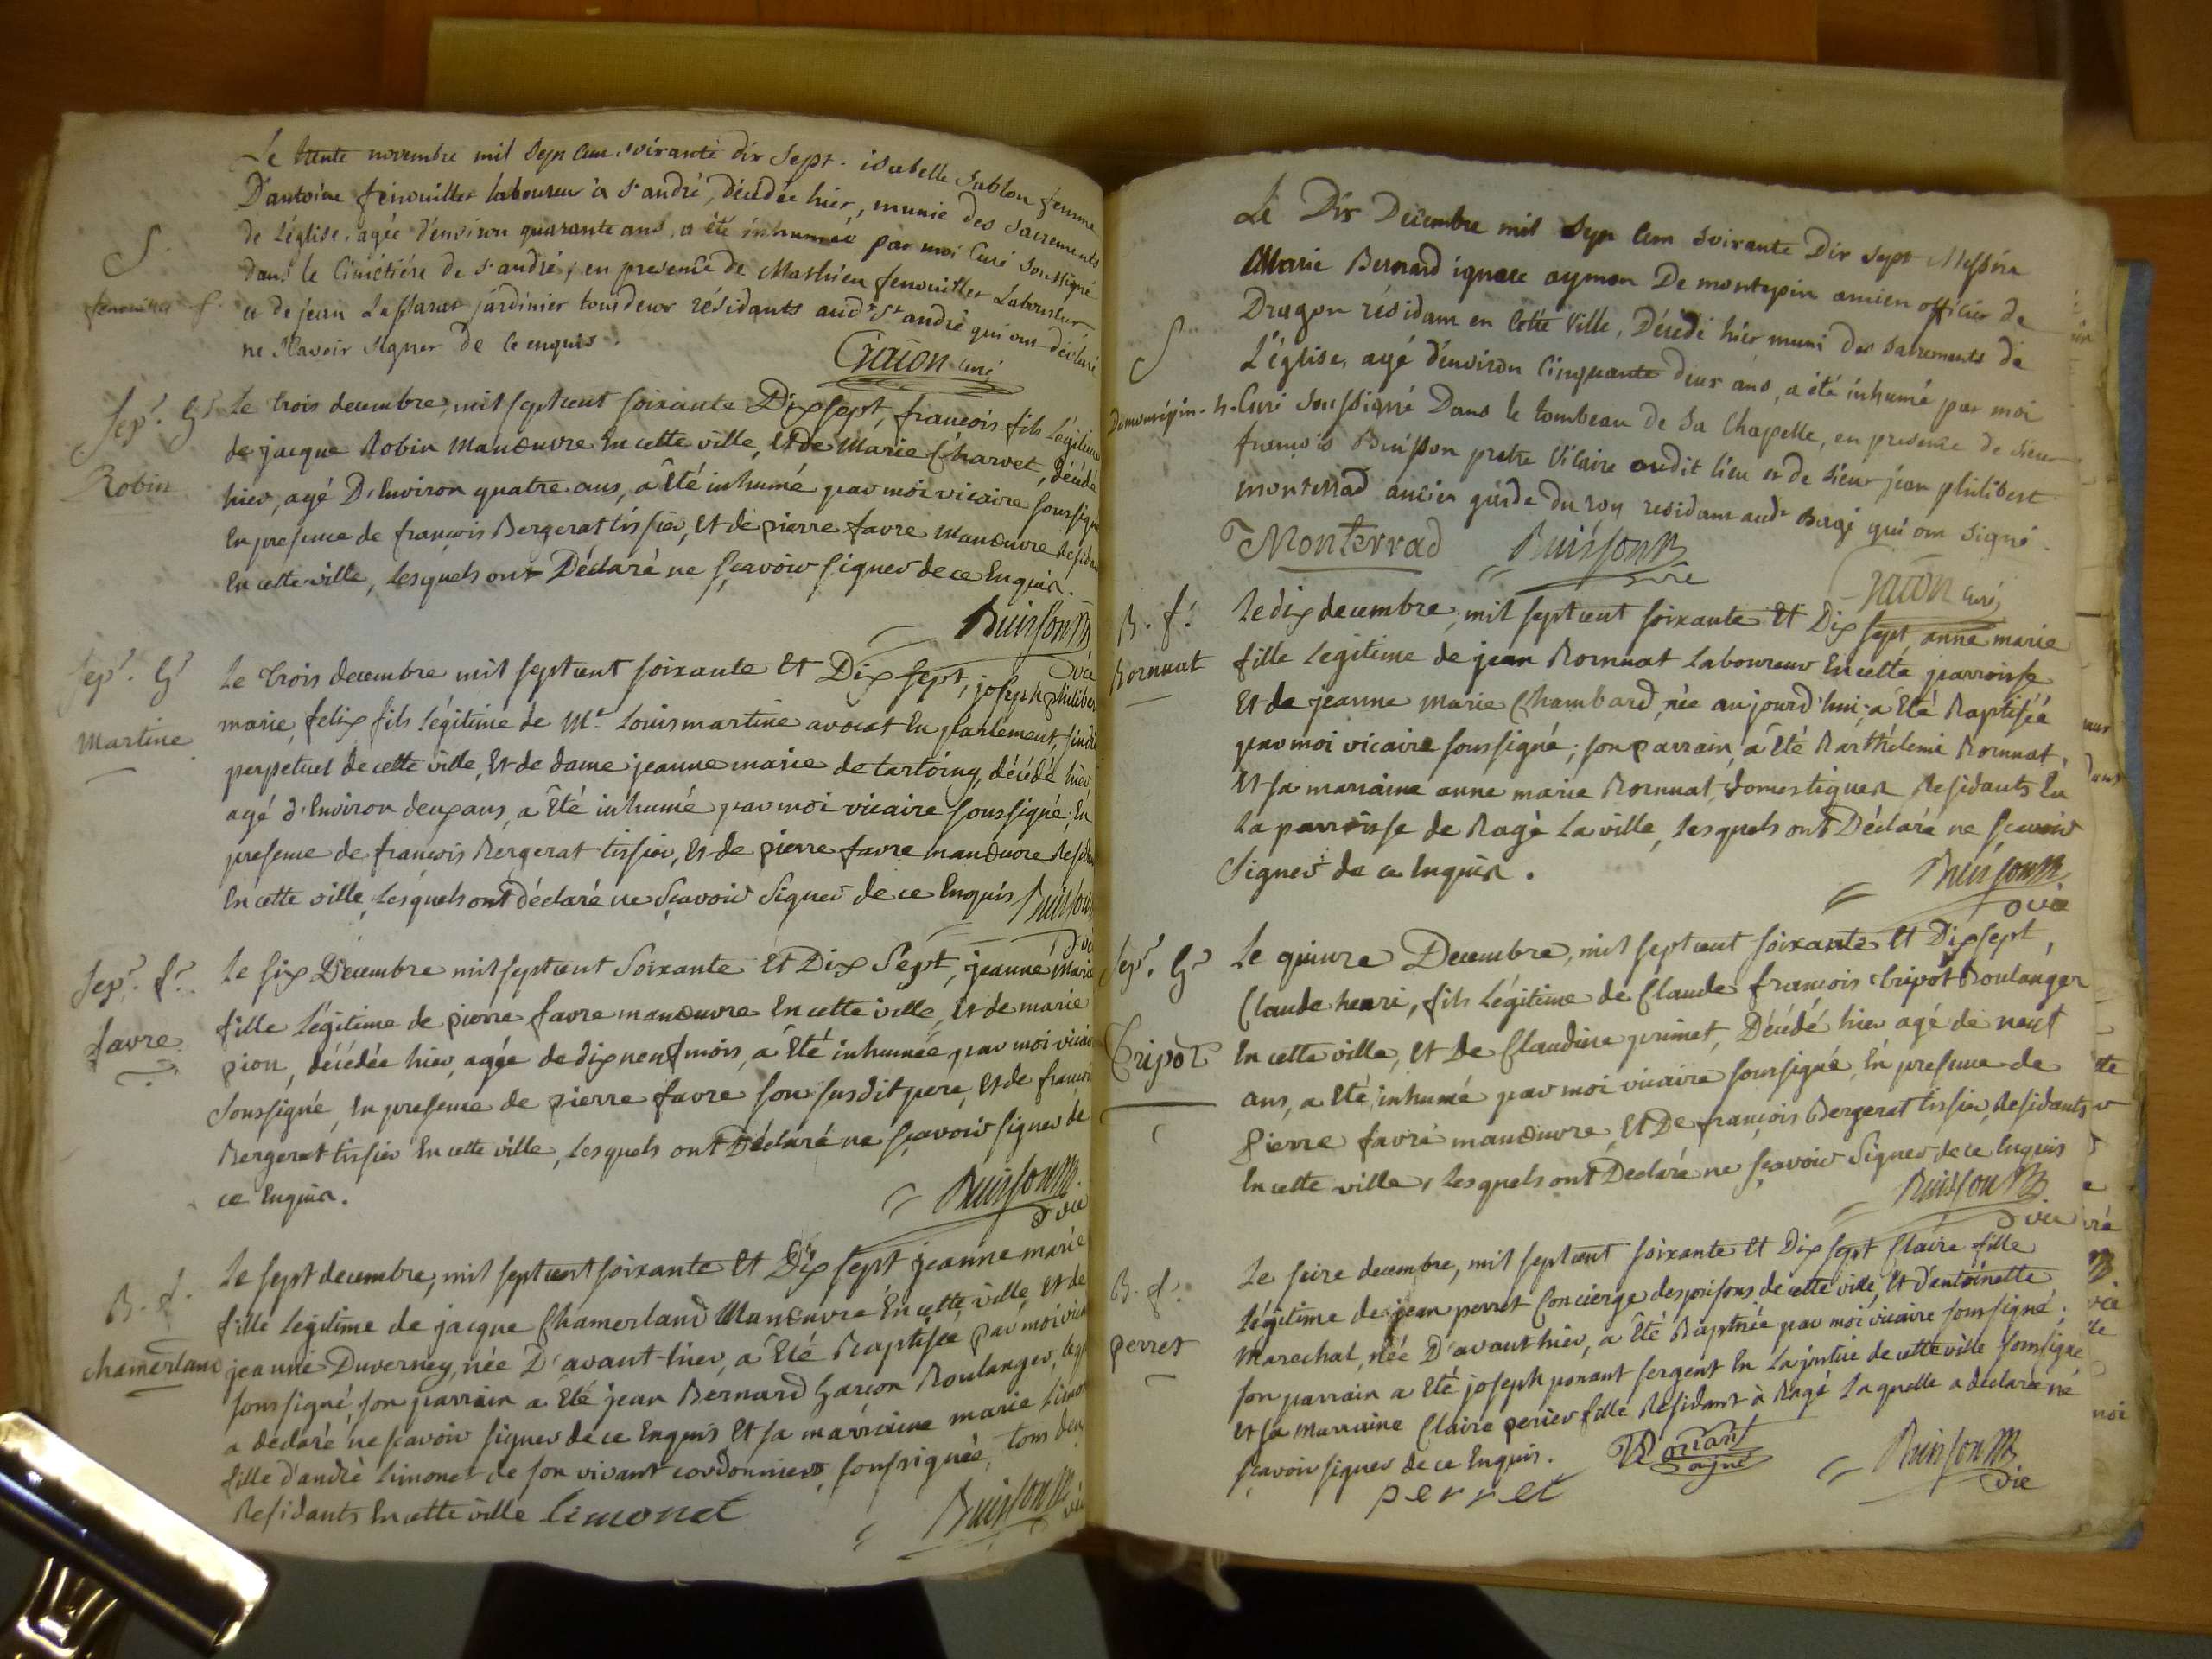 Le trente novembre mil sept cent soixante dix sept. isabelle Sablon femme
D'antoine fenouillet laboureur à st andré, décédée hier, munie des sacrements
de l'église, agée d'environ quarante ans, a été inhumée par moi Curé soussigné
S.
dans le Cimétiére de st andré, en presence de Mathieu fenouillet Laboureur
fenouillet f.
et de jean jardinier tous deux résidants audt st andré qui ont déclaré
ne sçavoir signer de ce enquis.
Gacon curé
Sepr. Gr
Le trois decembre, mil sept cent soixante Dix sept, francois fils légitime
de jacque Robin manœuvre En cette ville, Et de Marie Charvet, décédé
Robin
hier, agé D'Environ quatre ans, a Eté inhumé par moi vicaire soussigné
En presence de francois Bergerat tissier, Et de pierre favre manœuvre Resid
En cette ville, Lesquels ont Déclaré ne sçavoir signer de ce Enquis.
Buisson
vic
Sepr. Gr
Le trois decembre mil sept cent soixante Et Dix sept, joseph philiber
marie, felix fils légitime de Mr. Louis martine avocat En parlement, sindi
Martine
perpetuel de cette ville, Et de dame jeanne marie de tartoing, décédé hier,
agé d'Environ deux ans, a Eté inhumé par moi vicaire soussigné; En
presence de francois Bergerat tissier, Et de pierre favre manœuvre Resid
En cette ville, Lesquels ont déclaré ne sçavoir Signer de ce Enquis Buisson
vic
Sepr. fr.
Le six Décembre mil sept cent Soixante Et Dix Sept, jeanne Marie
fille légitime de pierre favre manœuvre En cette ville, Et de marie
favre
pion, décédée hier, agée de dix neuf mois, a Eté inhumée par moi vicai
Soussigné, En presence de pierre favre son susdit pere, Et de francoi
Bergerat tissier En cette ville, Lesquels ont Déclaré ne sçavoir signer de
ce Enquis.
Buisson
vic
B. f.
Le sept decembre, mil sept cent soixante Et Dix sept jeanne marie
fille légitime de jacque Chamerland Manœuvre En cette ville, Et de
chamerland
jeanne Duverney, née D'avant-hier, a Eté Baptisée par moi vicai
soussigné, son parrain a Eté jean Bernard Garcon Boulanger,
a déclaré ne sçavoir signer de ce Enquis Et sa marraine marie Limon
fille d'andré Limonet de son vivant cordonnier, soussignée, tous deu
Résidants En cette ville limonet
Buisson
vic
Le Dix Decembre mil Sept Cent Soixante Dix Sept Messire
Marie Bernard ignace aymon De montepin ancien officier de
Dragon résidant en Cette Ville, Décédé hier muni des sacrements de
S
L'église, agé d'environ Cinquante deux ans, a été inhumé par moi
Demontépin. h.
Curé soussigné Dans le tombeau de sa Chappelle, en presence de sieur
francois Buisson pretre Vicaire audit lieu et de sieur jean philibert
monterrad ancien garde du roy residant audt Bagé qui ont signé.
Monterrad Buisson
vic
Gacon curé
B. f.
Le dix decembre, mil sept cent soixante Et Dix sept, anne marie
Bornuat
fille légitime de jean Bornuat Laboureur En cette parroisse
Et de jeanne Marie Chambard, née aujourd'hui, a Eté Baptisée
par moi vicaire soussigné; son parrain a Eté Barthélemi Bornuat,
Et sa marraine anne marie Bornuat, domestiques Residants En
La parroisse de Bagé La ville, Lesquels ont Déclaré ne sçavoir
Signer de ce Enquis.
Buisson
vic
Sepr. Gr
Le quinze Decembre, mil sept cent soixante Et Dix sept,
Claude henri, fils Légitime de Claude francois Tripôt Boulanger
Tripot
En cette ville, Et De Claudine primet, Décédé hier agé de neuf
ans, a Eté inhumé par moi vicaire soussigné, En presence de
Pierre favre manœuvre, Et De francois Bergerat tissier, Residants
En cette ville, Lesquels ont Déclaré ne sçavoir Signer de ce Enquis
Buisson
vic
B. f.
Le seize decembre, mil sept cent soixante Et Dix sept Claire fille
légitime de jean perret Concierge des prisons de cette ville, Et d'entoinette
perret
Marechal, née D'avant hier, a Eté Baptisée par moi vicaire soussigné;
son parrain a Eté joseph ponant sergent En La justice de cette ville soussigné
Et sa Marraine Claire perier fille Résidant à Bagé Laquelle a déclaré ne
sçavoir signer de ce Enquis.
perret
Buisson
vic